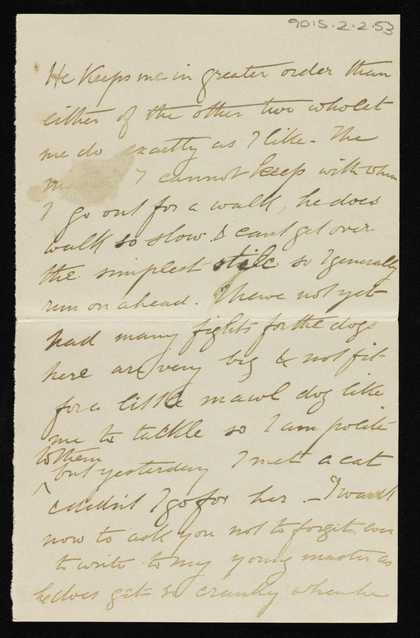 9015.2.2.53
He keeps me in greater order than
either of the other two who let
me do exactly as I like. The
I cannot keep with when
I go out for a walk, he does
walk so slow & cant get over
the simplest stile so I generally
run on ahead. I have not yet
had many fights for the dogs
here are very big & not fit
for a little mawl dog like
me to tackle so I am polite
to them
but yesterday I met a cat
couldnt I go for her. – I want
now to ask you not to forget
to write to my young master as
he does get so cranky when he